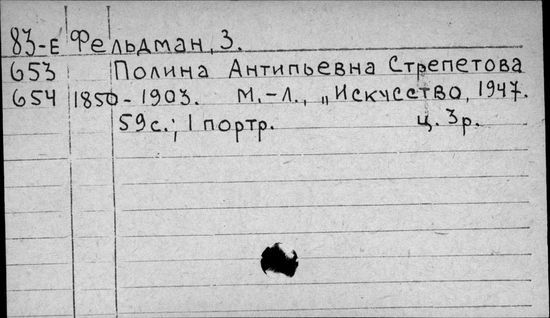 83-Е Фельдман, З.
653 Полина Антипьевна Стрепетова
654 1850-1903. М.-Л., „Искусство, 1947.
59с.; 1 портр. ц. 3р.